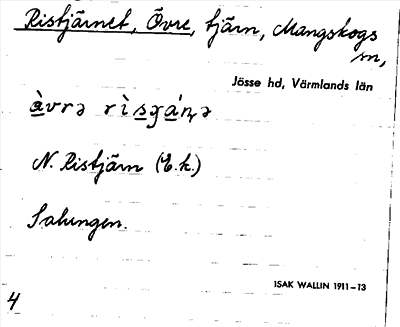 Ristjärnet, Övre, tjärn, Mangskogs
sn,
Jösse hd, Värmlands län
N. Ristjärn (E.k.)
Salungen.
ISAK WALLIN 1911–13
4